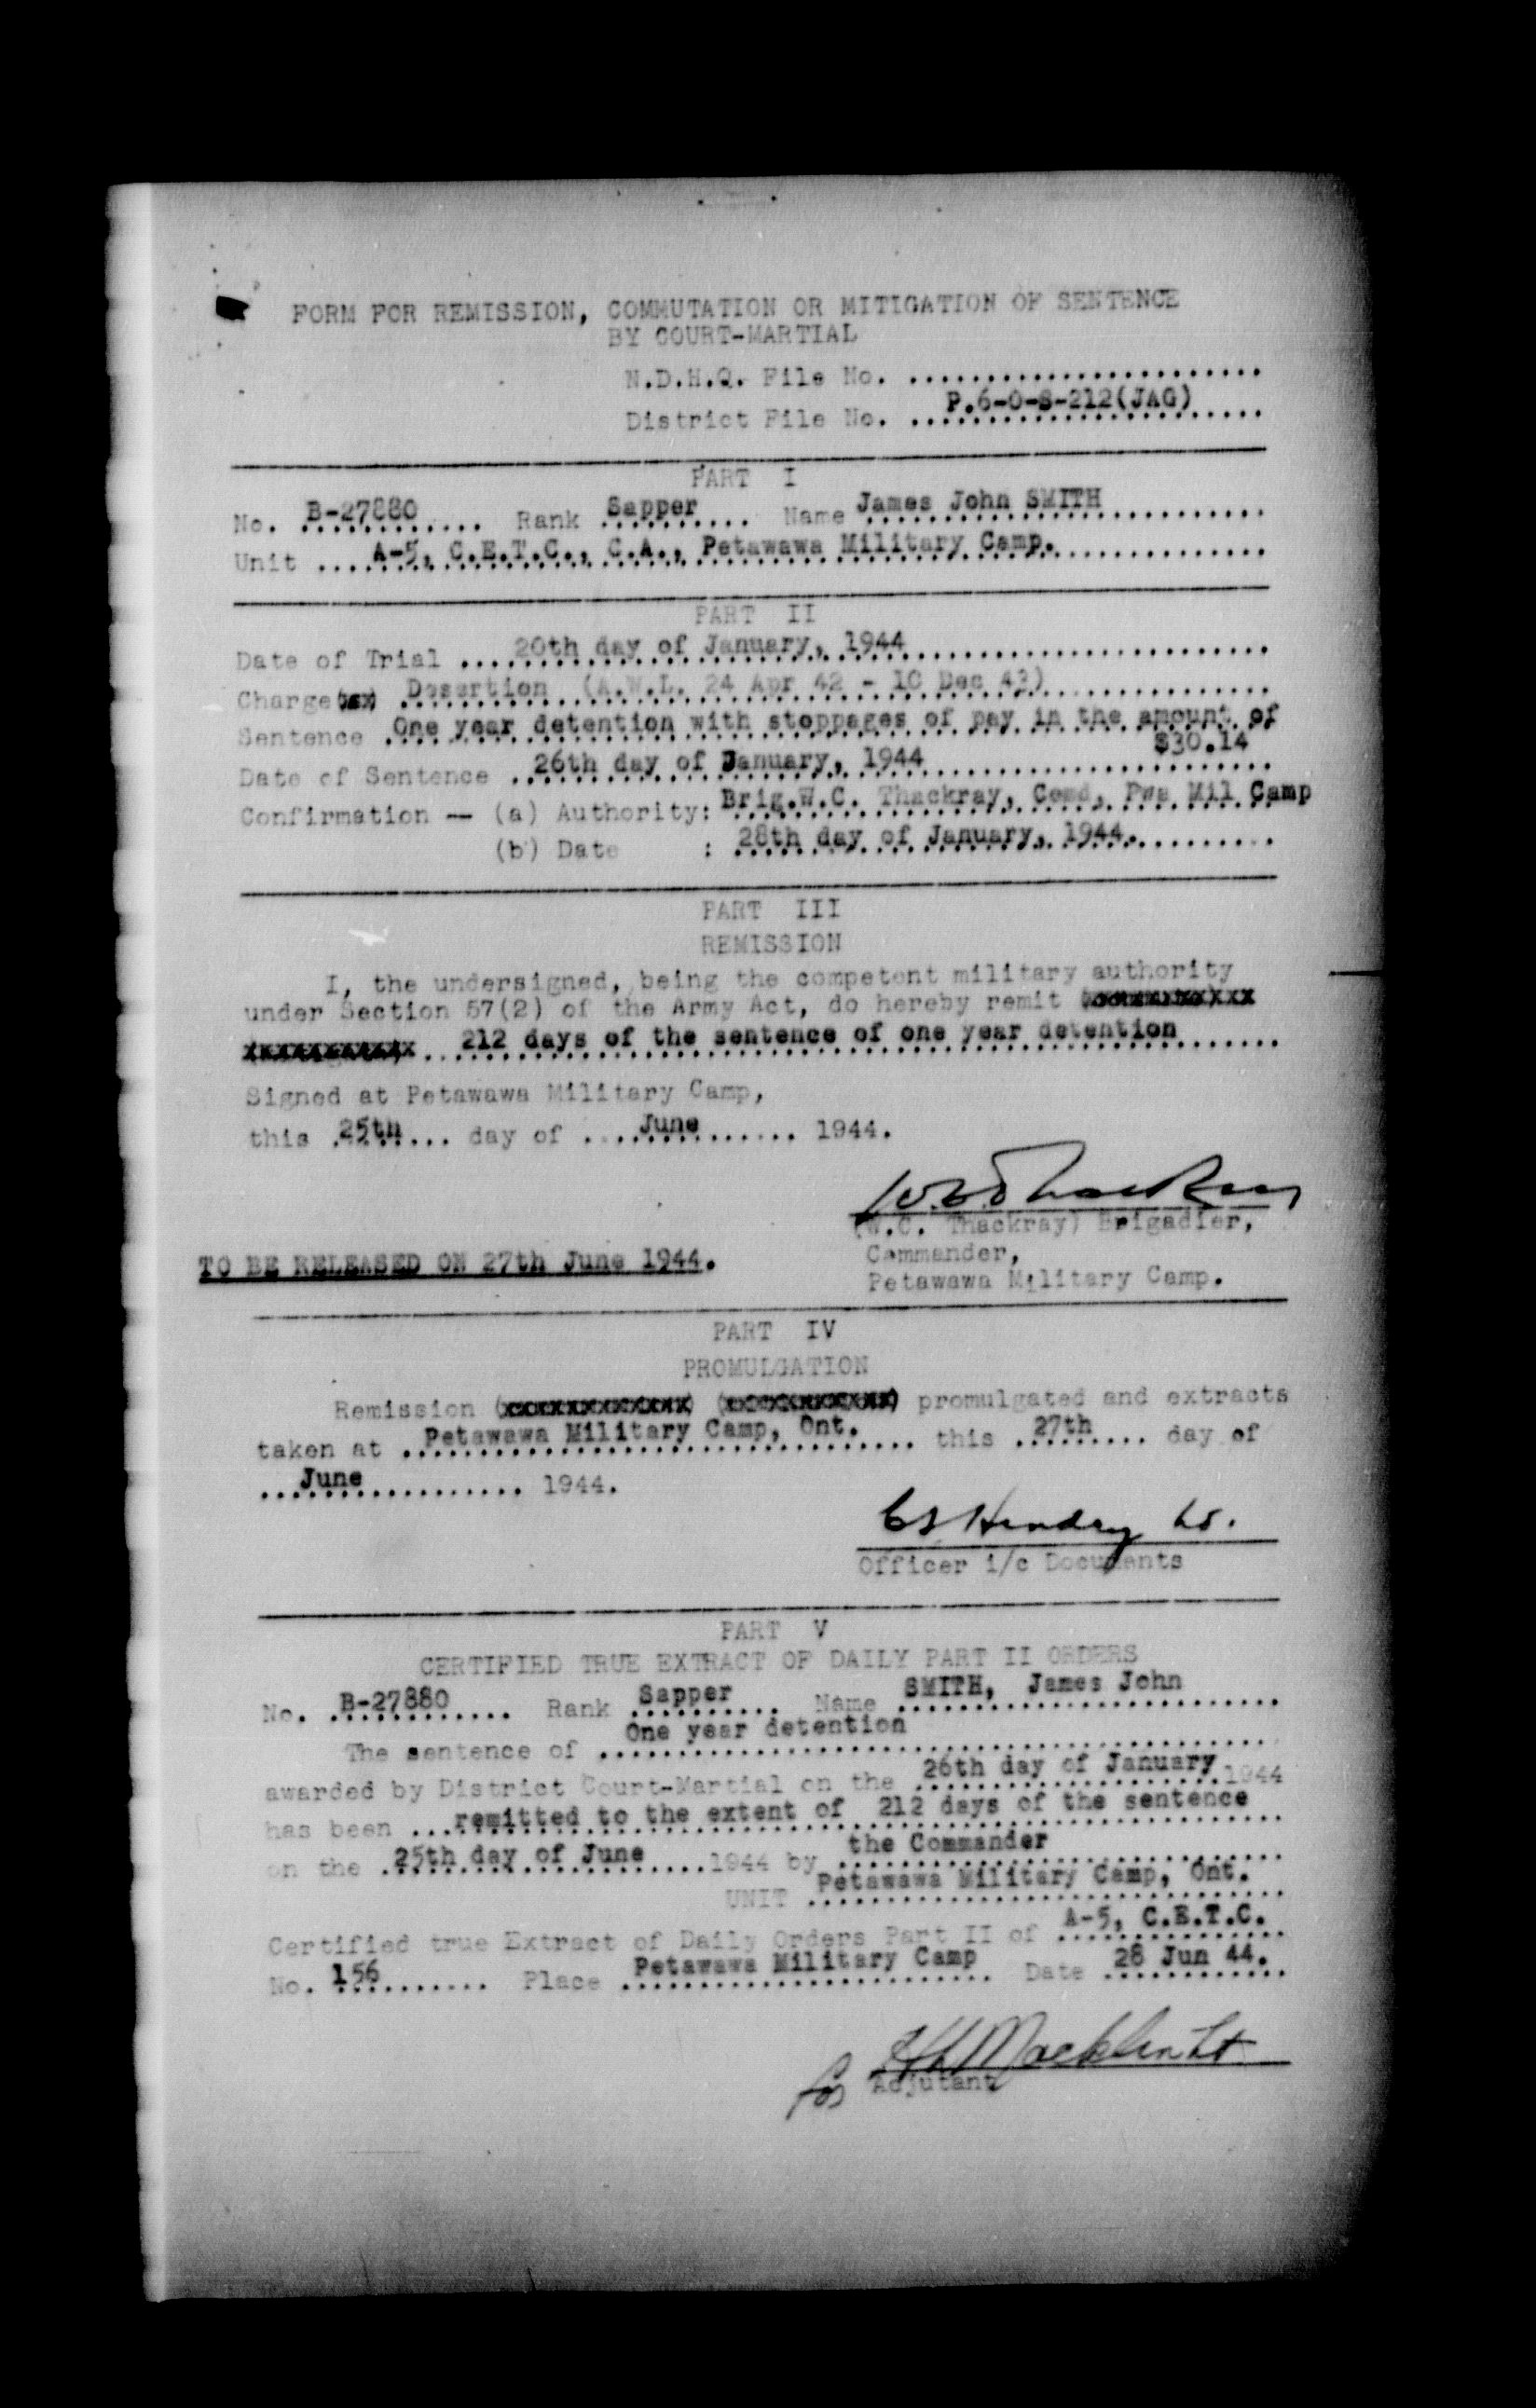 FORM FOR REMISSION, COMMUTATION OR MITIGATION OF SENTENCE
BY COURT-MARTIAL
N.D.H.Q. File No. ........................
District File No. P.6-0-S-212(JAG)
PART I
No. B-27880 Rank Sapper Name James John SMITH
Unit A-5, C.E.T.C., C.A., Petawawa Military Camp.
PART II
Date of Trial 20th day of January, 1944
Charge Desertion (A.W.L. 24 Apr 42 - 10 Dec 43)
Sentence One year detention with stoppages of pay in the amount of
$30.14
Date of Sentence 26th day of January, 1944
Confirmation -- (a) Authority: Brig.W.C. Thackray, Comd, Pwa Mil Camp
(b) Date : 28th day of January, 1944.
PART III
REMISSION
I, the undersigned, being the competent military authority
under Section 57(2) of the Army Act, do hereby remit
212 days of the sentence of one year detention
Signed at Petawawa Military Camp,
this 25th day of June 1944.
W.C. Thackray
(W.C. Thackray) Brigadier,
Commander,
TO BE RELEASED ON 27th June 1944.
Petawawa Military Camp.
PART IV
PROMULGATION
Remission promulgated and extracts
taken at Petawawa Military Camp, Ont. this 27th day of
June 1944.
Hendry Lt.
Officer i/c Documents
PART V
CERTIFIED TRUE EXTRACT OF DAILY PART II ORDERS
No. B-27880 Rank Sapper Name SMITH, James John
The sentence of One year detention
awarded by District Court-Martial on the 26th day of January 1944
has been remitted to the extent of 212 days of the sentence
on the 25th day of June 1944 by the Commander
UNIT Petawawa Military Camp, Ont.
Certified true Extract of Daily Orders Part II of A-5, C.E.T.C.
No. 156 Place Petawawa Military Camp Date 28 Jun 44.
for Lt
Adjutant